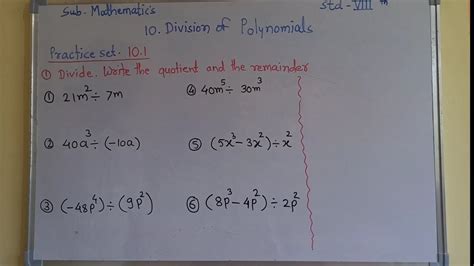 Sub. Mathematics
Std - VIII th
10. Division of Polynomials
Practice set. 10.1
① Divide. Write the quotient and the remainder
① 21m² ÷ 7m
④ 40m⁵ ÷ 30m³
② 40a³ ÷ (-10a)
⑤ (5x³ - 3x²) ÷ x²
③ (-48p⁴) ÷ (9p²)
⑥ (8p³ - 4p²) ÷ 2p²